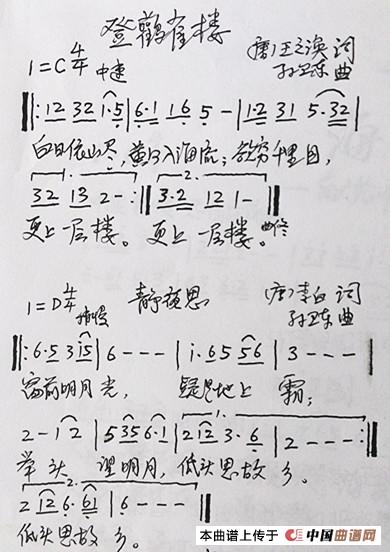 登鹳雀楼
1=C 4/4 中速 (唐)王之涣 词
孙卫东 曲
‖: 12 32 1·5 | 6·1 16 5 - | 1·2 31 5·32 |
白日依山尽,黄河入海流;欲穷千里目,
1. 32 13 2- :‖ 2. 3·2 12 1- ‖
更上一层楼。更上一层楼。曲终
1=D 4/4 稍慢 静夜思 (唐)李白 词
孙卫东 曲
‖: 6·5 3 15 | 6 - - - | i·65 56 | 3 - - - |
窗前明月光, 疑是地上 霜;
2-12 | 535 6·1 | 1. 212 3·6 | 2 - - - :‖
举头 望明月,低头思故 乡。
2. 212 6·61 | 6 - - - ‖
低头思故 乡。
本曲谱上传于 中国曲谱网